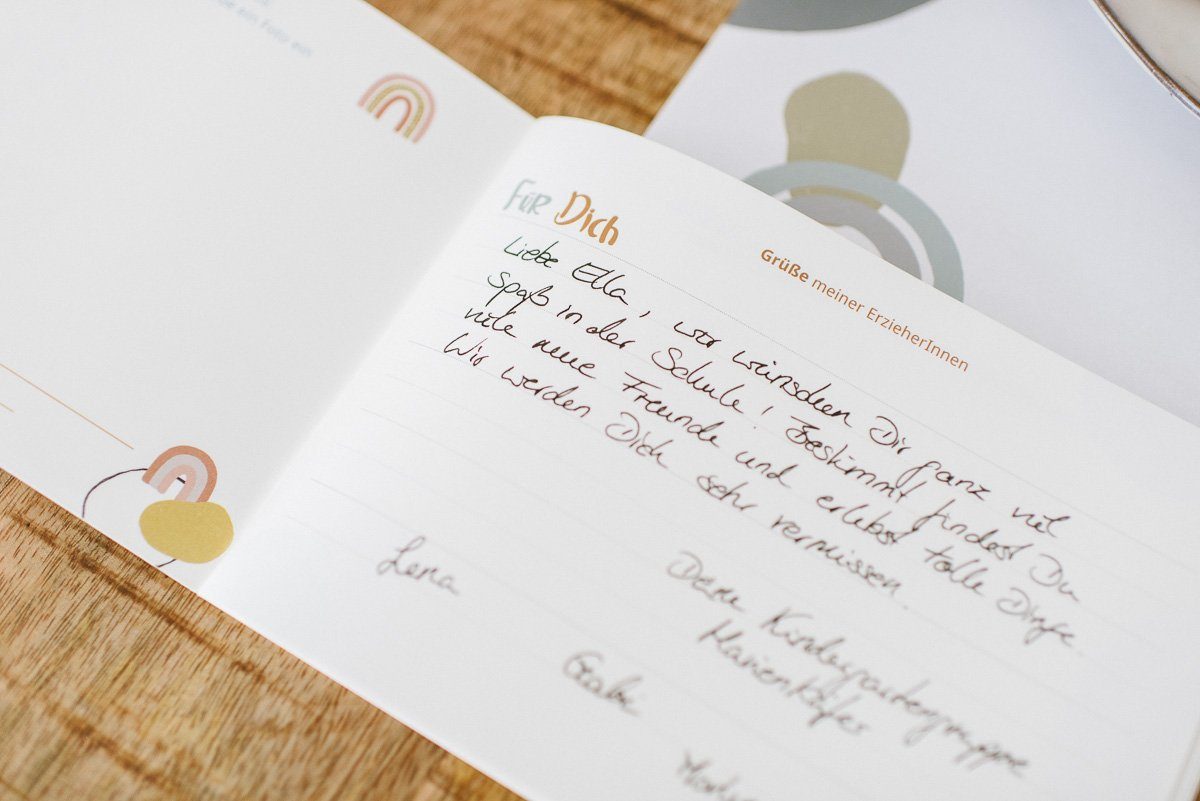 ein Foto ein
FÜR Dich
Grüße meiner ErzieherInnen
Liebe Ella, wir wünschen Dir ganz viel
Spaß in der Schule! Bestimmt findest Du
viele neue Freunde und erlebst tolle Dinge.
Wir werden Dich sehr vermissen.
Deine Kindergartengruppe
Marienkäfer
Lena
Gabi